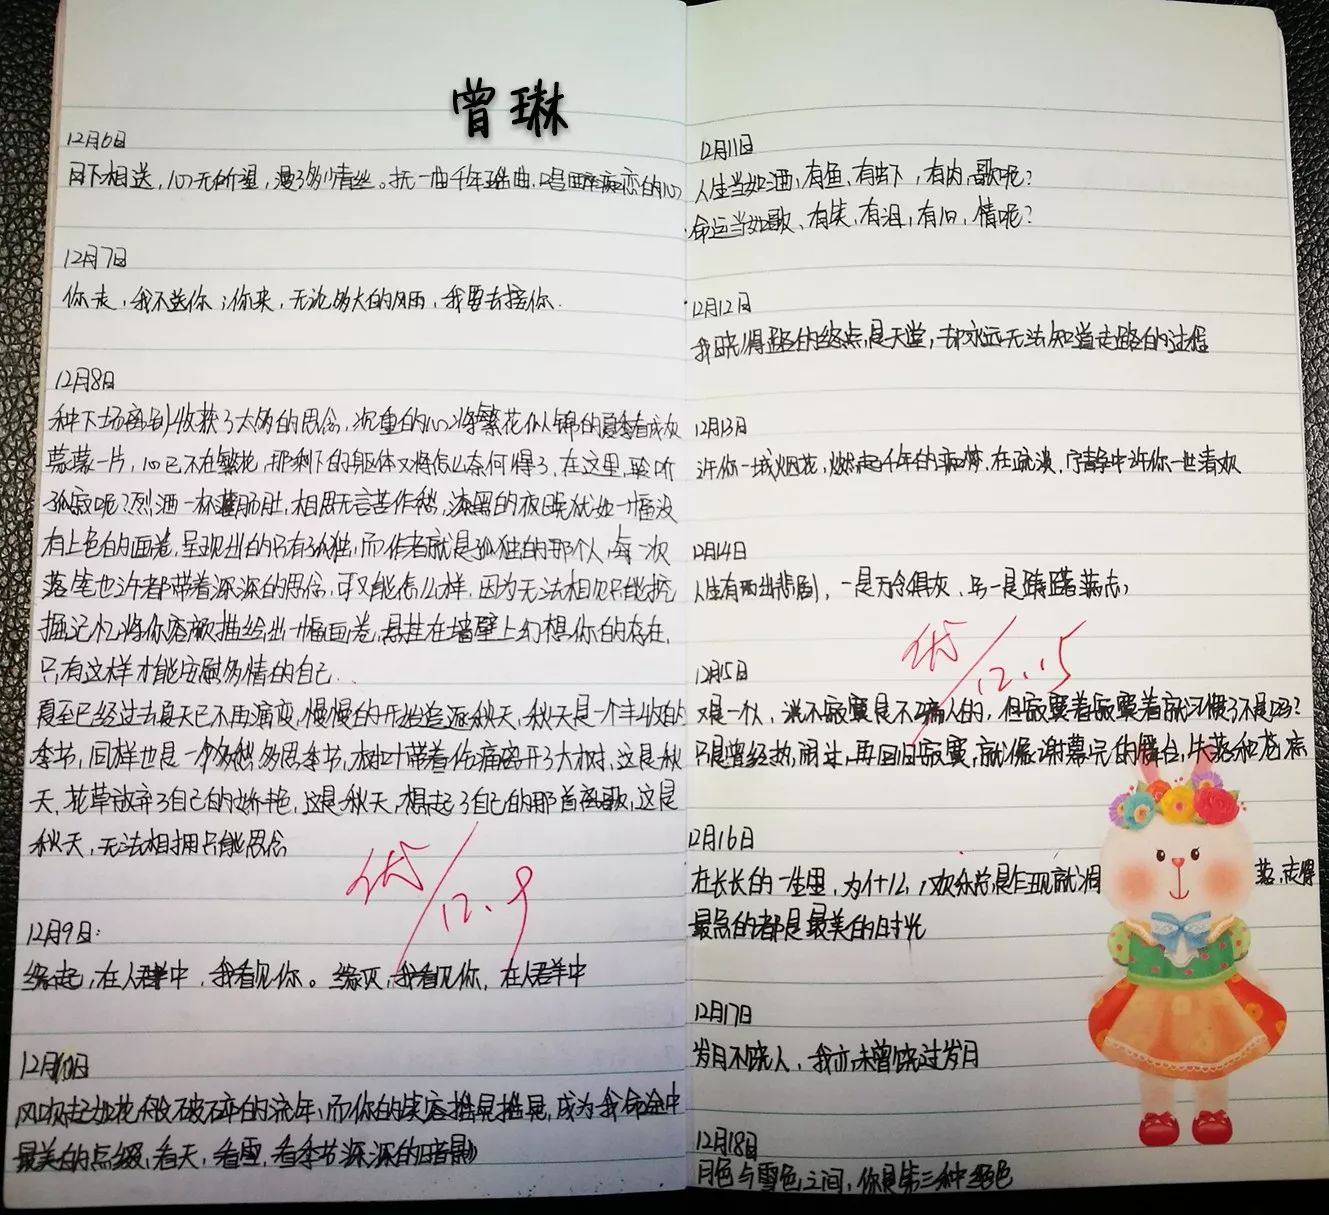 曾琳
12月6日
月下相送,心无所望,漫了多少情丝。抚一曲千年瑶曲,唱一曲醉痴恋的心
12月7日
你走,我不送你;你来,无论多大的风雨,我要去接你.
12月8日
种下场离别收获了太多的思念,沉重的心将繁花似锦的夏季看成灰
蒙蒙一片,心已不在繁花,那剩下的躯体又将怎么奈何得了,在这里,聆听
孤寂呢?烈酒一杯灌肠肚,相思无言苦作愁,漆黑的夜晚犹如一幅没
有上色的画卷,呈现出的只有孤独,而作者就是孤独的那个人,每一次
落笔也许都带着深深的思念,可又能怎么样,因为无法相见只能挖
掘记忆,将你容颜描绘出一幅画卷,悬挂在墙壁上幻想你的存在,
只有这样才能安慰多情的自己..
夏至已经过去夏天已不再演变,慢慢的开始追逐秋天,秋天是一个丰收的
季节,同样也是一个多愁多思季节,树叶带着伤痛离开了大树,这是秋
天,花草放弃了自己的娇艳,这是秋天,想起了自己的那首离歌,这是
秋天,无法相拥只能思念
12.9
12月9日:
缘起,在人群中,我看见你。缘灭,我看见你,在人群中
12月10日
风吹起如花般破碎的流年,而你的笑容摇晃摇晃,成为我命途中
最美的点缀,看天,看雪,看季节深深的暗影
12月11日
人生当如酒,有鱼、有虾,有肉,歌呢?
命运当如歌、有笑,有泪,有旧,情呢?
12月12日
我晓得路的终点是天堂,却永远无法知道走路的过程
12月13日
许你一城烟花,燃起千年的痴梦,在疏淡,宁静中许你一世清欢
12月14日
人生有两出悲剧,一是万念俱灰、另一是踌躇满志;
12.15
12月15日
又是一个人,说不寂寞是不可骗人的,但寂寞着寂寞着就习惯了不是吗?
只是曾经热闹过,再回归寂寞,就像谢幕完的舞台,失落和苍凉
12月16日
在长长的一生里,为什么,欢乐总是乍现就凋落,走得
最急的都是最美的时光
12月17日
岁月不饶人,我亦未曾饶过岁月
12月18日
月色与雪色之间,你是第三种绝色